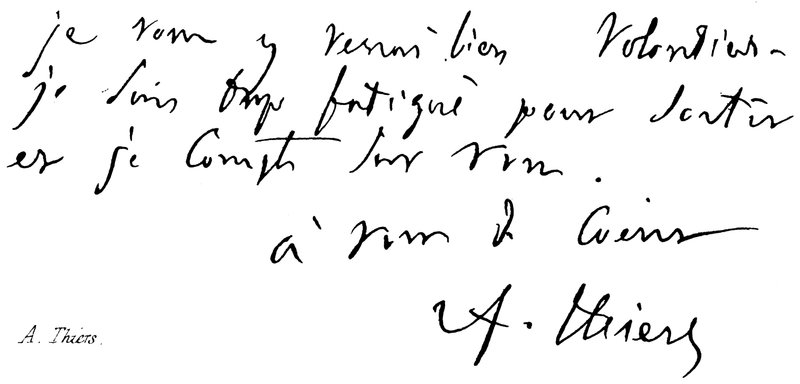 je vous y verrais bien volontiers
je suis trop fatigué pour sortir
et je compte sur vous.
à vous de cœur
A. Thiers
A. Thiers.